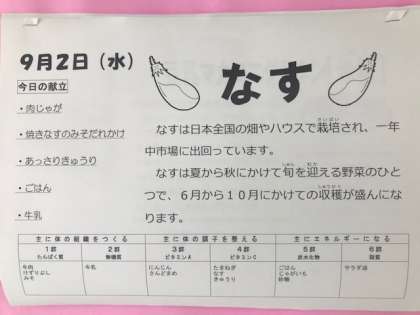 9月2日（水）
なす
今日の献立
・肉じゃが
・焼きなすのみそだれかけ
・あっさりきゅうり
・ごはん
・牛乳
なすは日本全国の畑やハウスで栽培され、一年
中市場に出回っています。
なすは夏から秋にかけて旬を迎える野菜のひと
つで、６月から１０月にかけての収穫が盛んにな
ります。
主に体の組織をつくる
主に体の調子を整える
主にエネルギーになる
1群 たんぱく質
2群 無機質
3群 ビタミンA
4群 ビタミンC
5群 炭水化物
6群 脂質
牛肉
けずりぶし
みそ
牛乳
にんじん
さんどまめ
たまねぎ
なす
きゅうり
ごはん
じゃがいも
砂糖
サラダ油